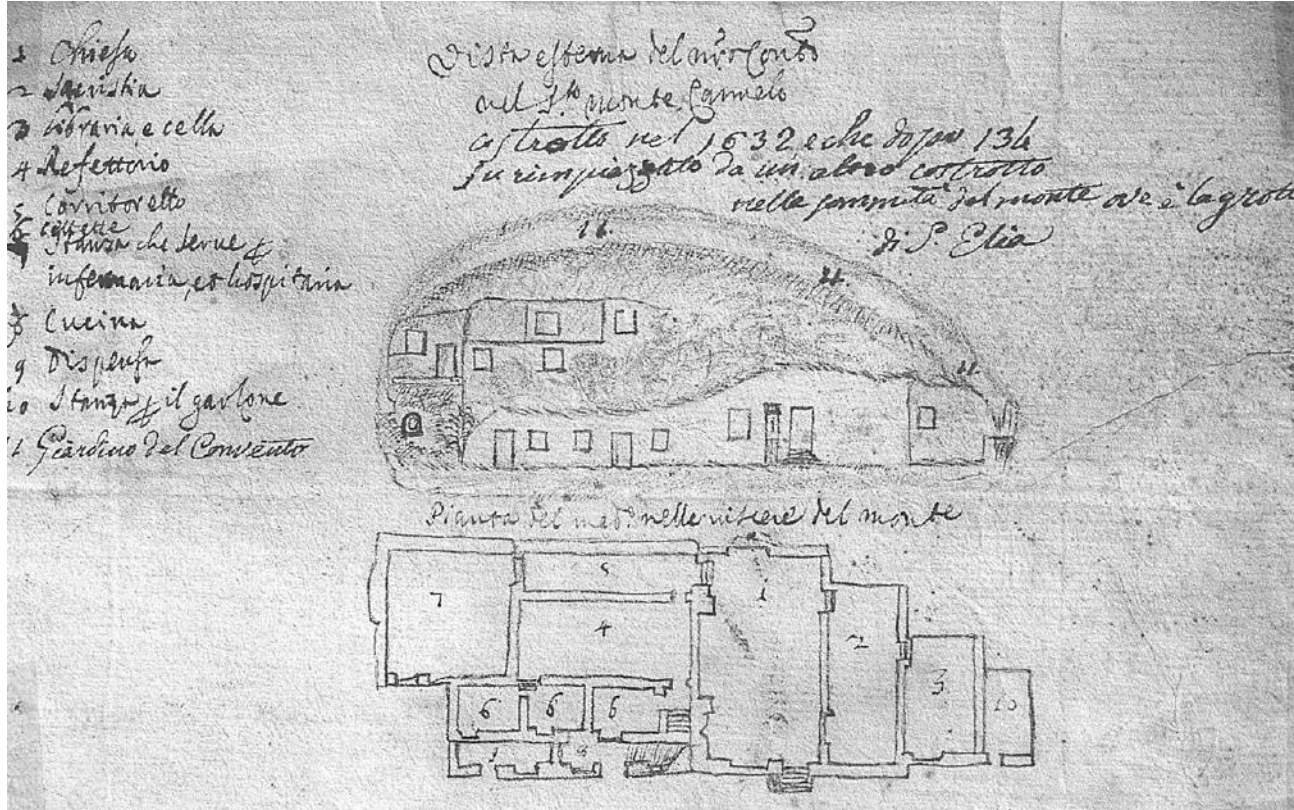 1 Chiesa
2 Sacristia
3 Libraria e cella
4 Refettorio
5 Corritoretto
6 cellette
7 Stanza che serve p
infermaria, et hospitaria
8 Cucina
9 Dispensa
10 Stanza p il garzone
11 Giardino del Convento
Vista esterna del nrõ Conto
nel Sto monte Carmelo
costrotto nel 1632 e che dopo 136
fu rimpiazzato da un altro costrotto
nella sommità del monte ove è la grott
di S. Elia
11.
11.
11.
Pianta del medo nelle viscere del monte
7
5
4
1
2
3
10
6
6
6